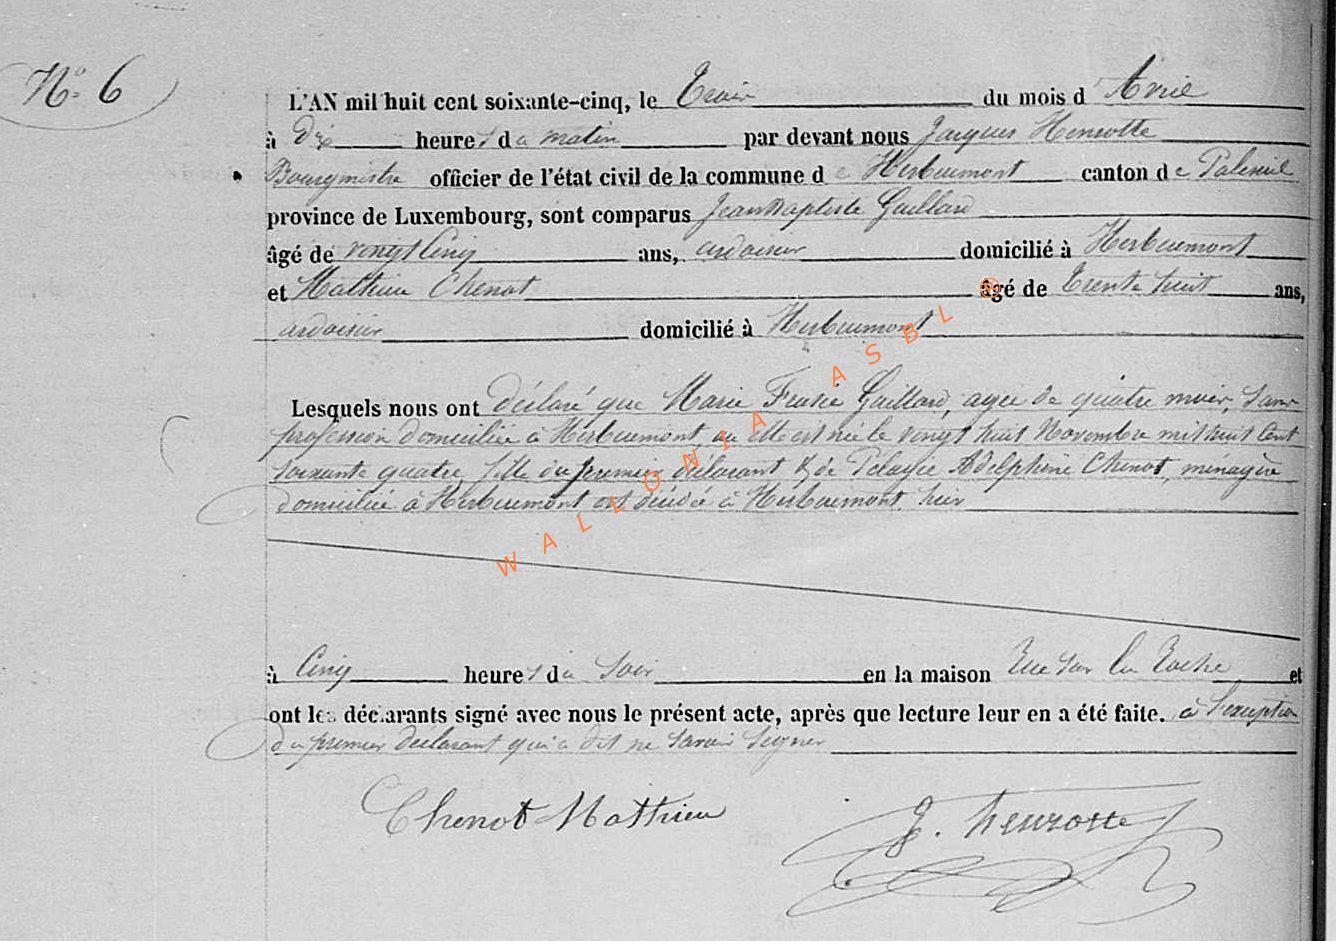 N° 6
L'AN mil huit cent soixante-cinq, le Trois du mois d'Avril
à Dix heures du matin par devant nous Jacques Henrotte
Bourgmestre officier de l'état civil de la commune de Herbeumont canton de Paliseul
province de Luxembourg, sont comparus Jean Baptiste Gaillard
âgé de vingt Cinq ans, ardoisier domicilié à Herbeumont
et Mathieu Chenot âgé de Trente huit ans,
ardoisier domicilié à Herbeumont
Lesquels nous ont déclaré que Marie Gaillard, agée de quatre mois, Sans
profession domiciliée à Herbeumont, ou elle est née le vingt huit Novembre mil huit Cent
soixante quatre, fille du premier déclarant & de Pelagie Adelphine Chenot, ménagère
domiciliée à Herbeumont est décédée à Herbeumont, hier
à Cinq heures du Soir en la maison Rue Sur la Roche et
ont les déclarants signé avec nous le présent acte, après que lecture leur en a été faite. à l'exception
du premier déclarant qui a dit ne savoir Signer
Chenot Mathieu J. Henrotte
WALLONIA ASBL ©